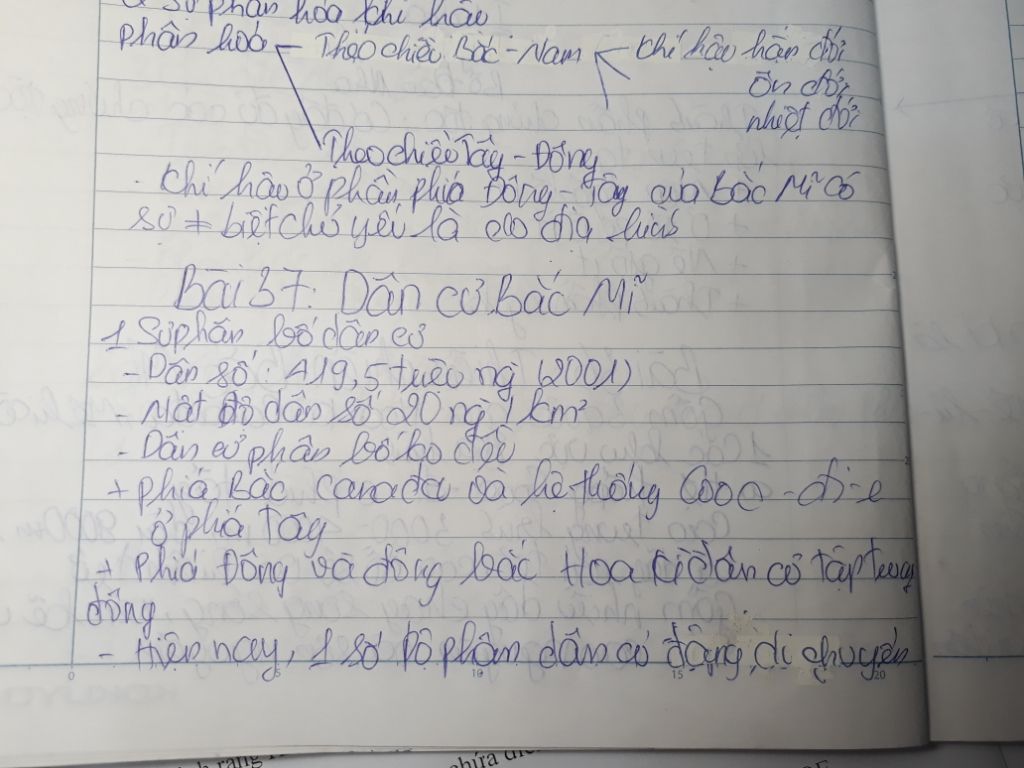 sự phân hóa khí hậu
phân hoá - Theo chiều Bắc - Nam - khí hậu hàn đới
ôn đới
nhiệt đới
Theo chiều Tây - Đông
. khí hậu ở phần phía Đông - Tây của Bắc Mĩ có
sự ≠ biệt chủ yếu là do địa hình
Bài 37: Dân cư Bắc Mĩ
1 Sự phân bố dân cư
- Dân số: 419,5 triệu ng (2001)
- Mật độ dân số 20 ng / km²
- Dân cư phân bố ko đều
+ phía Bắc Canada và hệ thống Cooc-đi-e
ở phía Tây
+ Phía Đông và đông bắc Hoa Kì dân cư tập trung
đông
- Hiện nay, 1 số bộ phận dân cư đang di chuyển